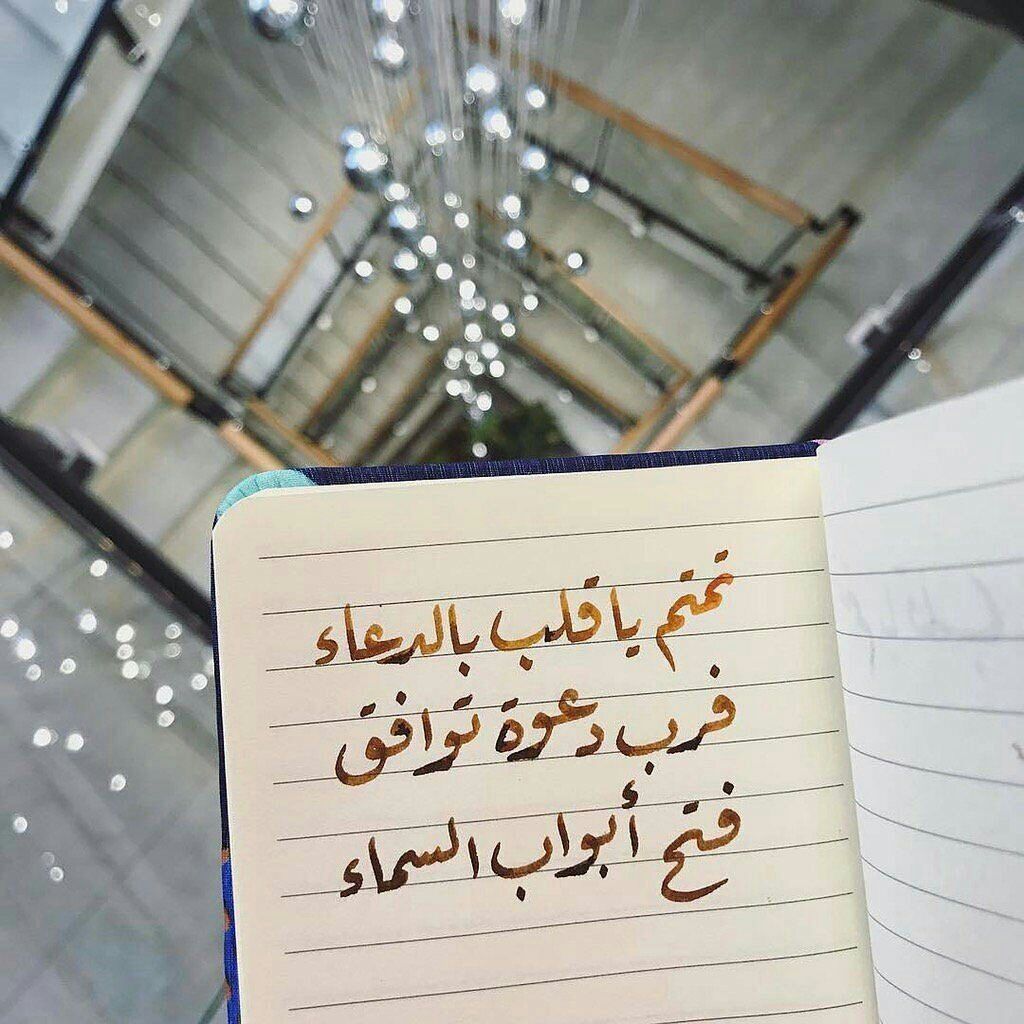 تمتم يا قلب بالدعاء
فرب دعوة توافق
فتح أبواب السماء